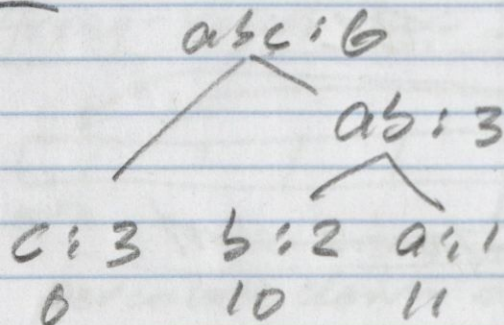 abc:6
ab:3
c:3 b:2 a:1
0 10 11